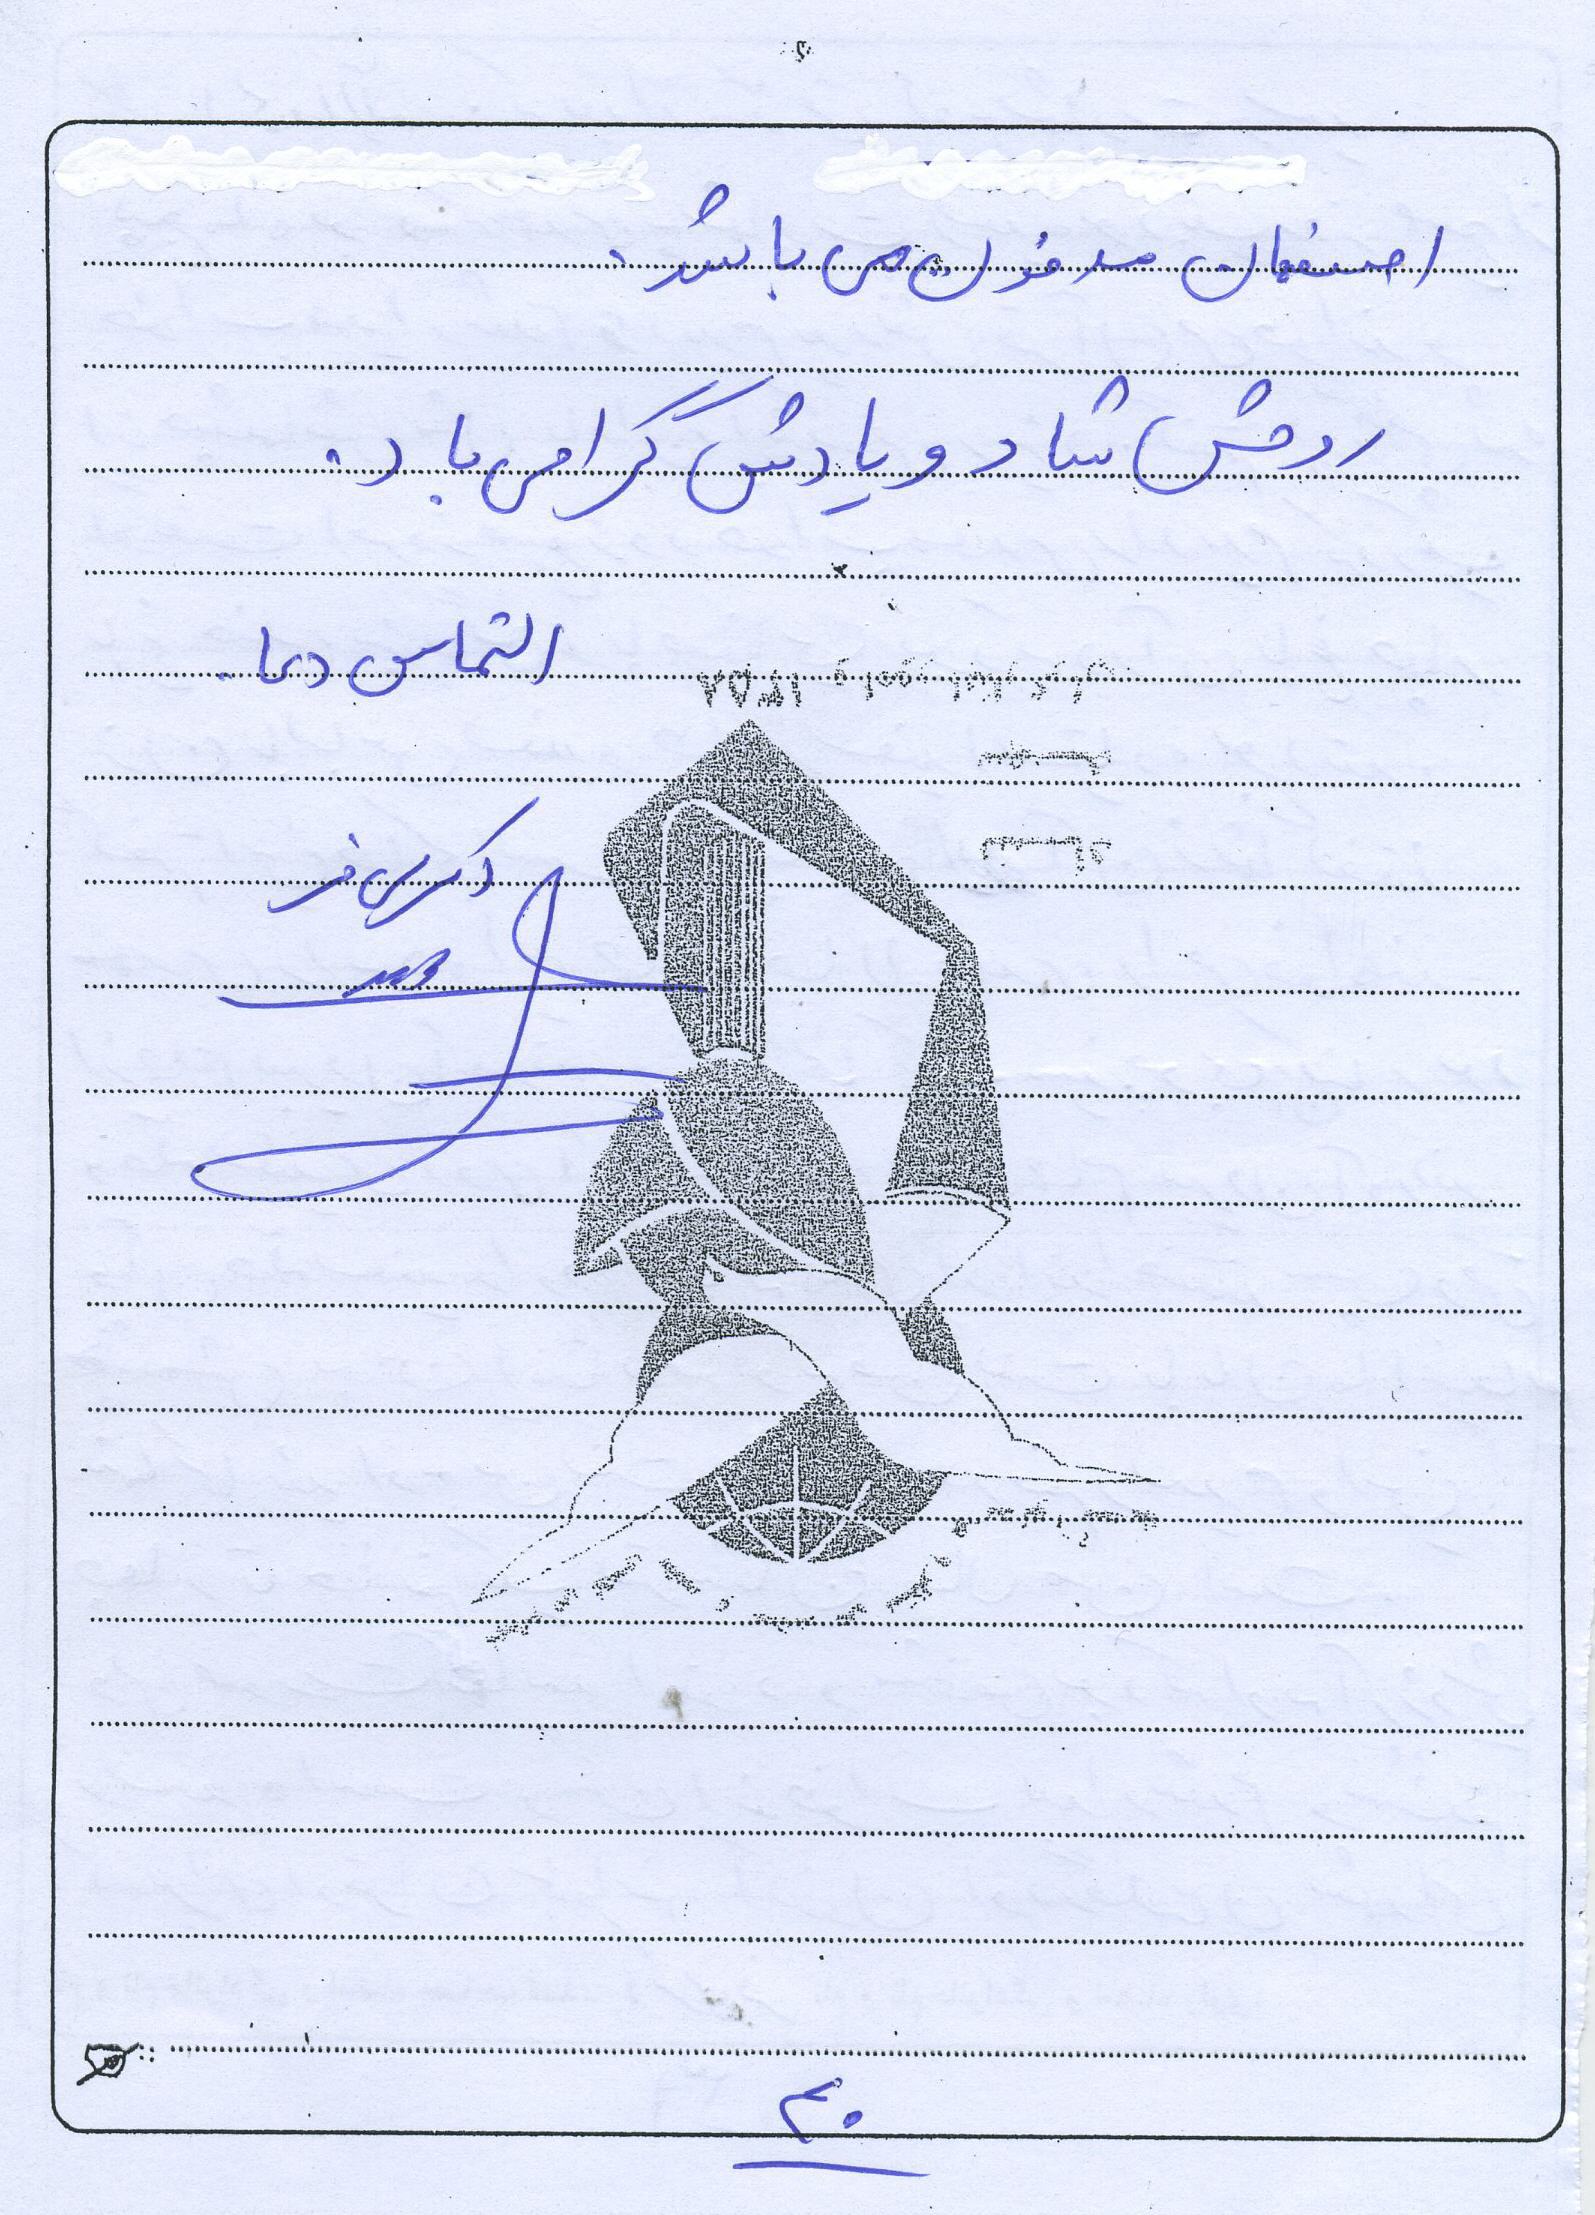 اصفهان مدفون می باشد.
روحش شاد و یادش گرامی باد.
التماس دعا.
۱۳۵۸
۴۰